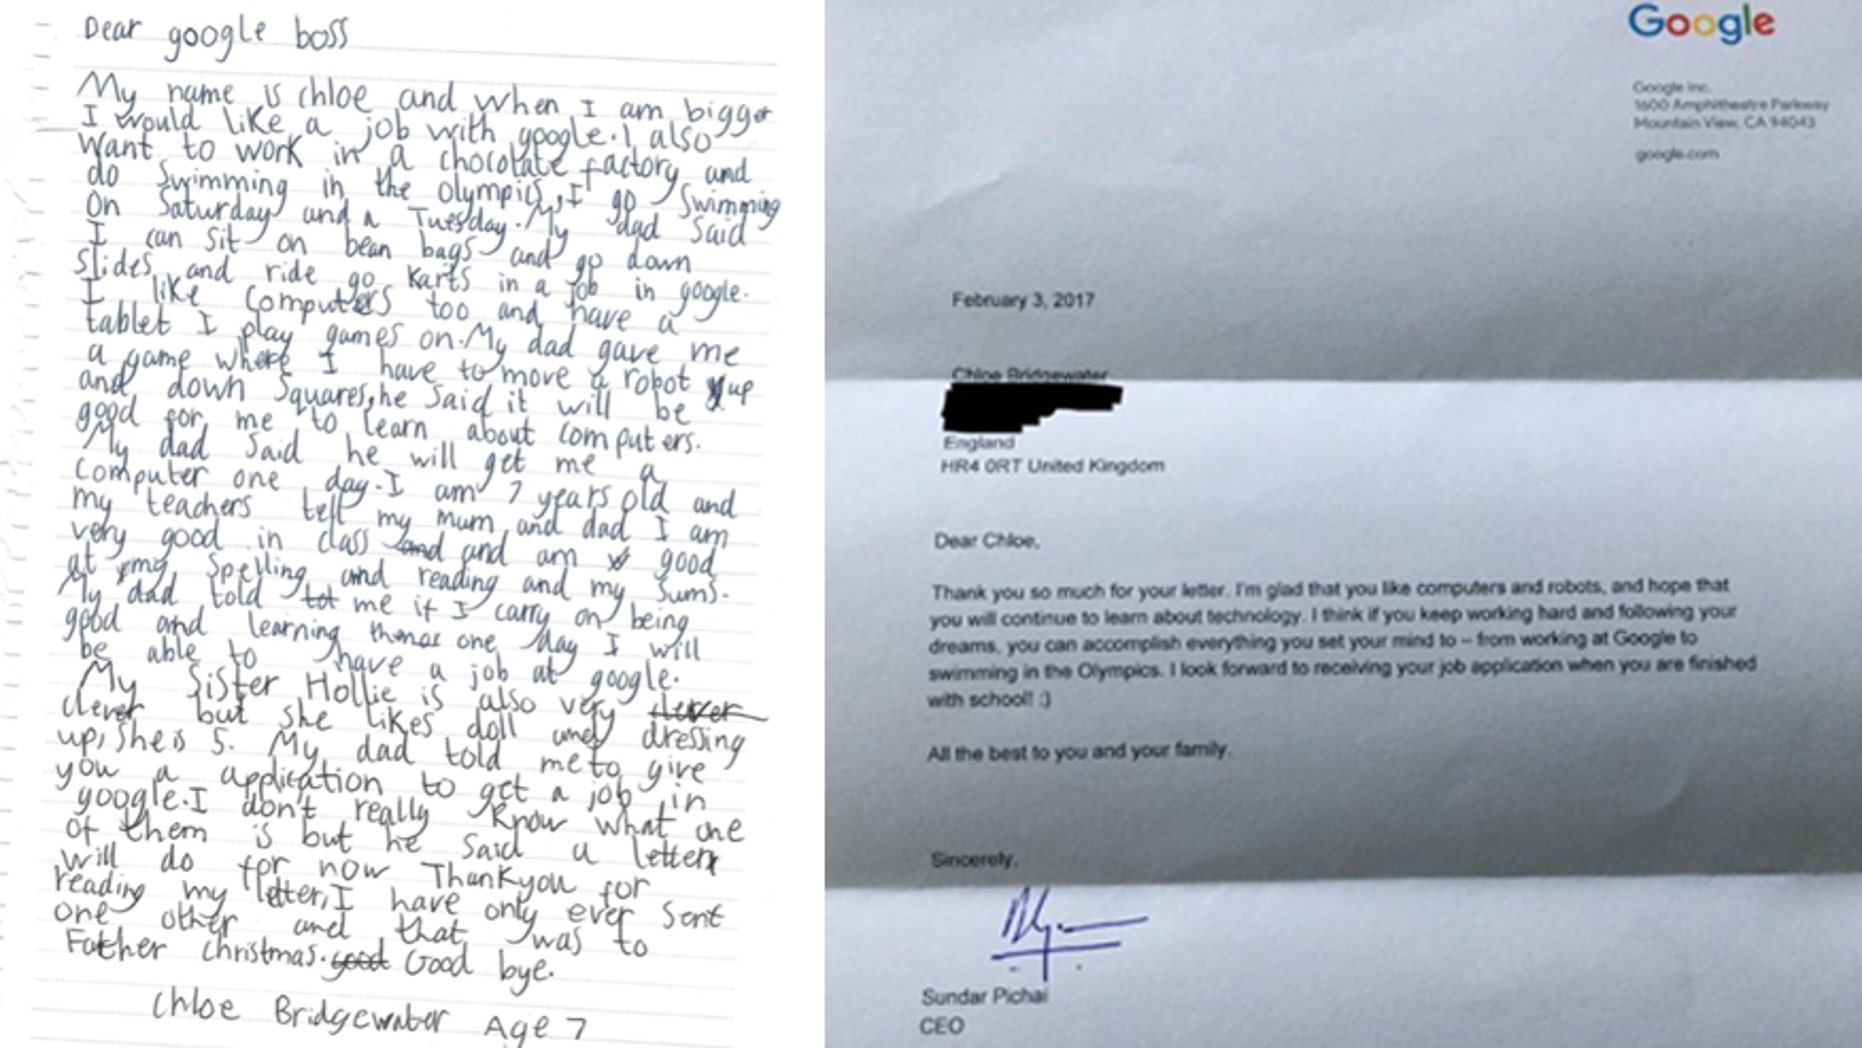 Dear google boss
My name is chloe and when I am bigger
I would like a job with google. I also
want to work in a chocolate factory and
do swimming in the olympics, I go Swimming
on Saturday and a Tuesday. My dad said
I can sit on bean bags and go down
slides and ride go karts in a job in google.
I like computers too and have a
tablet I play games on. My dad gave me
a game where I have to move a robot up
and down squares, he said it will be
good for me to learn about computers.
My dad said he will get me a
computer one day. I am 7 years old and
my teachers tell my mum and dad I am
very good in class and and am good
at my spelling and reading and my sums.
My dad told tot me if I carry on being
good and learning one day I will
be able to have a job at google.
My sister Hollie is also very clever
clever but she likes doll and dressing
up, she is 5. My dad told me to give
you a application to get a job in
google. I don't really know what one
of them is but he said a letter
will do for now Thankyou for
reading my letter, I have only ever sent
one other and that was to
Father christmas. good Good bye.
Chloe Bridgewater Age 7
Google
Google Inc.
1600 Amphitheatre Parkway
Mountain View, CA 94043
google.com
February 3, 2017
Chloe Bridgewater
England
HR4 0RT United Kingdom
Dear Chloe,
Thank you so much for your letter. I'm glad that you like computers and robots, and hope that
you will continue to learn about technology. I think if you keep working hard and following your
dreams, you can accomplish everything you set your mind to – from working at Google to
swimming in the Olympics. I look forward to receiving your job application when you are finished
with school! :)
All the best to you and your family.
Sincerely,
Sundar Pichai
CEO